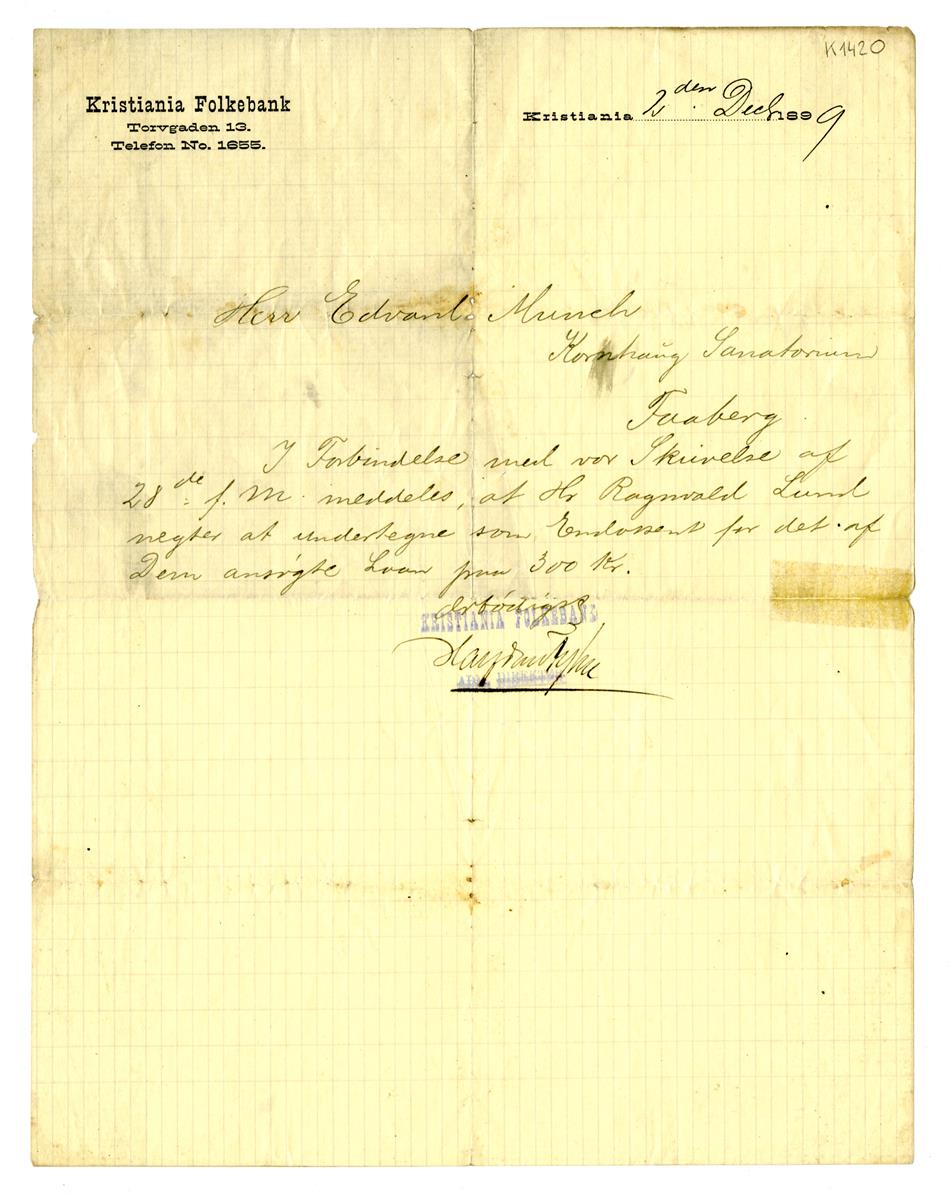 K1420
Kristiania Folkebank
Torvgaden 13.
Telefon No. 1655.
Kristiania 2den Decb. 1899
Herr Edvard Munch
Kornhaug Sanatorium
Faaberg
I Forbindelse med vor Skrivelse af
28de f. M. meddeles, at Hr Ragnvald Lund
negter at undertegne som Endossent for det af
Dem ansøgte Laan paa 300 Kr.
ærbødigst
KRISTIANIA FOLKEBANK